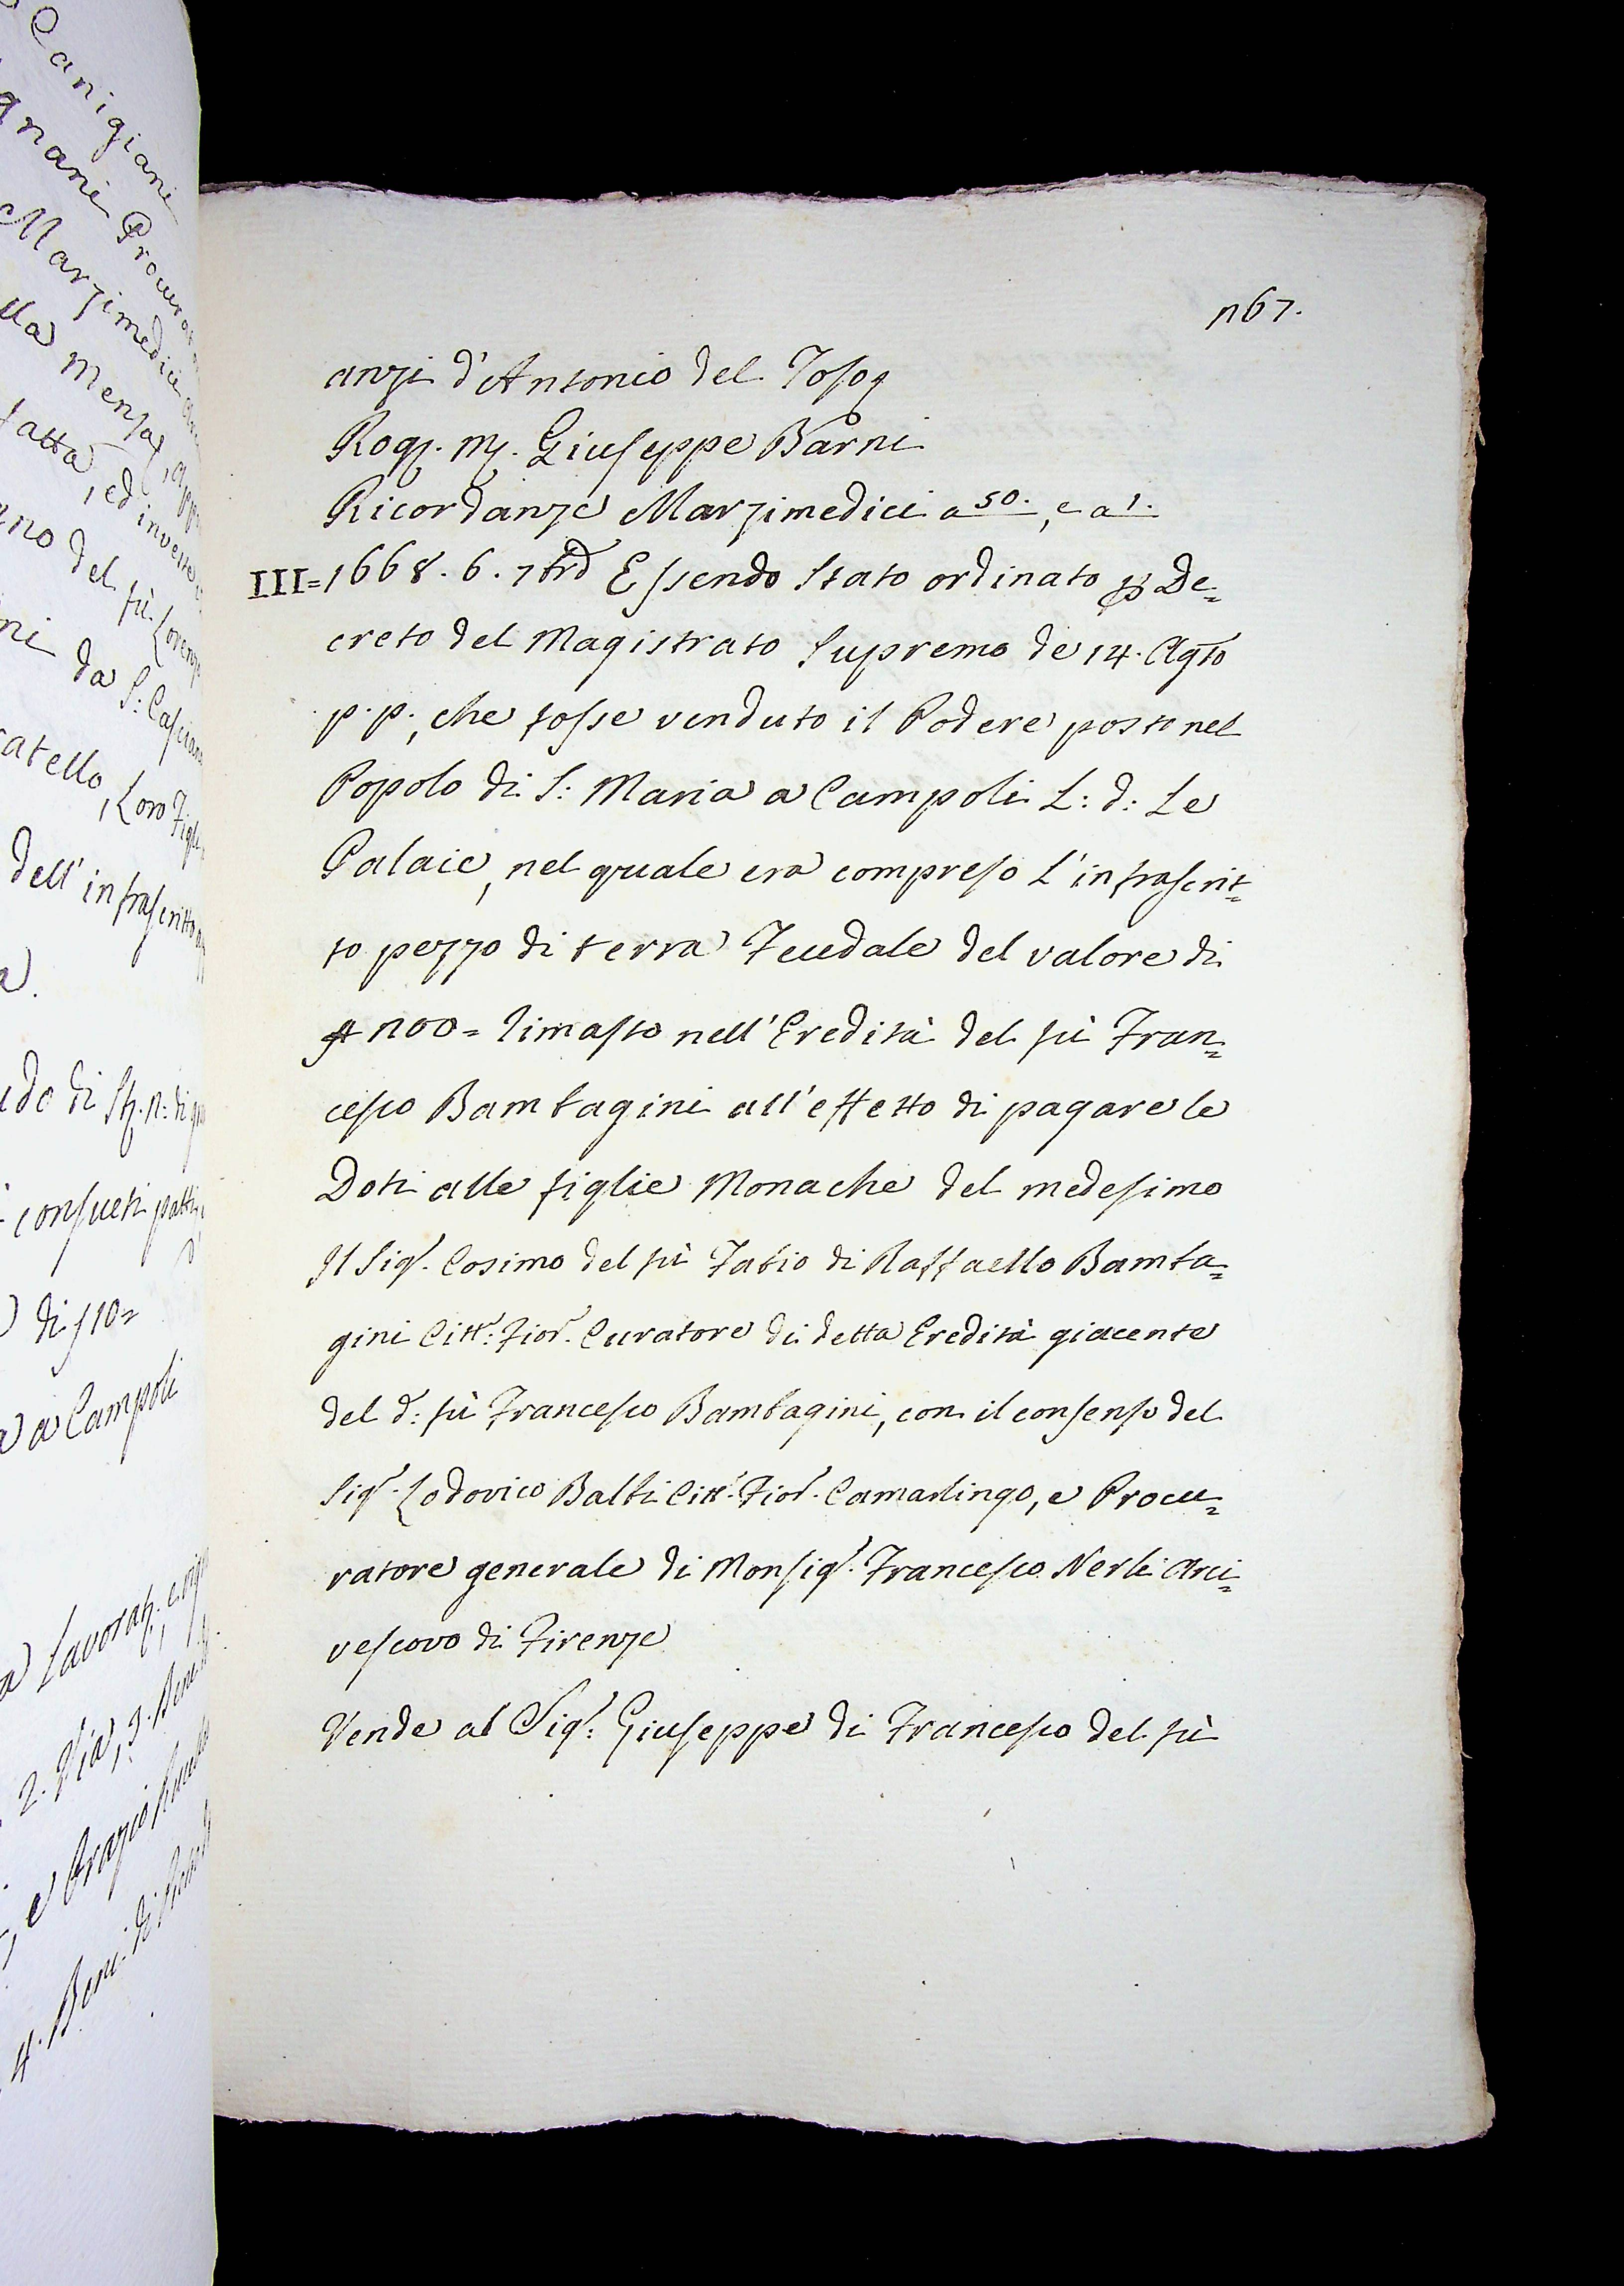 Canigiani
gnani Procura
Marzimedici
lla Mensa, app
fatta, ed investe
gno del fù Lorenzo
ni da S: Casciano
ratello, Loro Figli
dell' infrascritto
a.
udo di St. n: di
consueti patti
di ƒ 10=
a a Campoli
a Lavorat., e
2. Via, 3. Beni
e Orazio
4. Beni di
167.
anzi d'Antonio del Toso
Rog. M. Giuseppe Barni
Ricordanze Marzimedici a 50., e a 1.
III= 1668. 6. 7bre Essendo Stato ordinato p De=
creto del Magistrato Supremo de 14. Agto
p.p., che fosse venduto il Podere posto nel
Popolo di S: Maria a Campoli L: d: Le
Palaie, nel quale era compreso L'infrascrit=
to pezzo di terra Feudale del valore di
100= rimasto nell'Eredità del fù Fran=
cesco Bambagini all'effetto di pagare le
Doti alle figlie Monache del medesimo
Il Sigr. Cosimo del fù Fabio di Raffaello Bamba=
gini Citt: Fior. Curatore di detta Eredità giacente
del d: fù Francesco Bambagini, con il consenso del
Sigr. Lodovico Balbi Citt. Fior. Camarlingo, e Procu=
ratore generale di Monsigr. Francesco Nerli Arci=
vescovo di Firenze
Vende al Sigr: Giuseppe di Francesco del fù